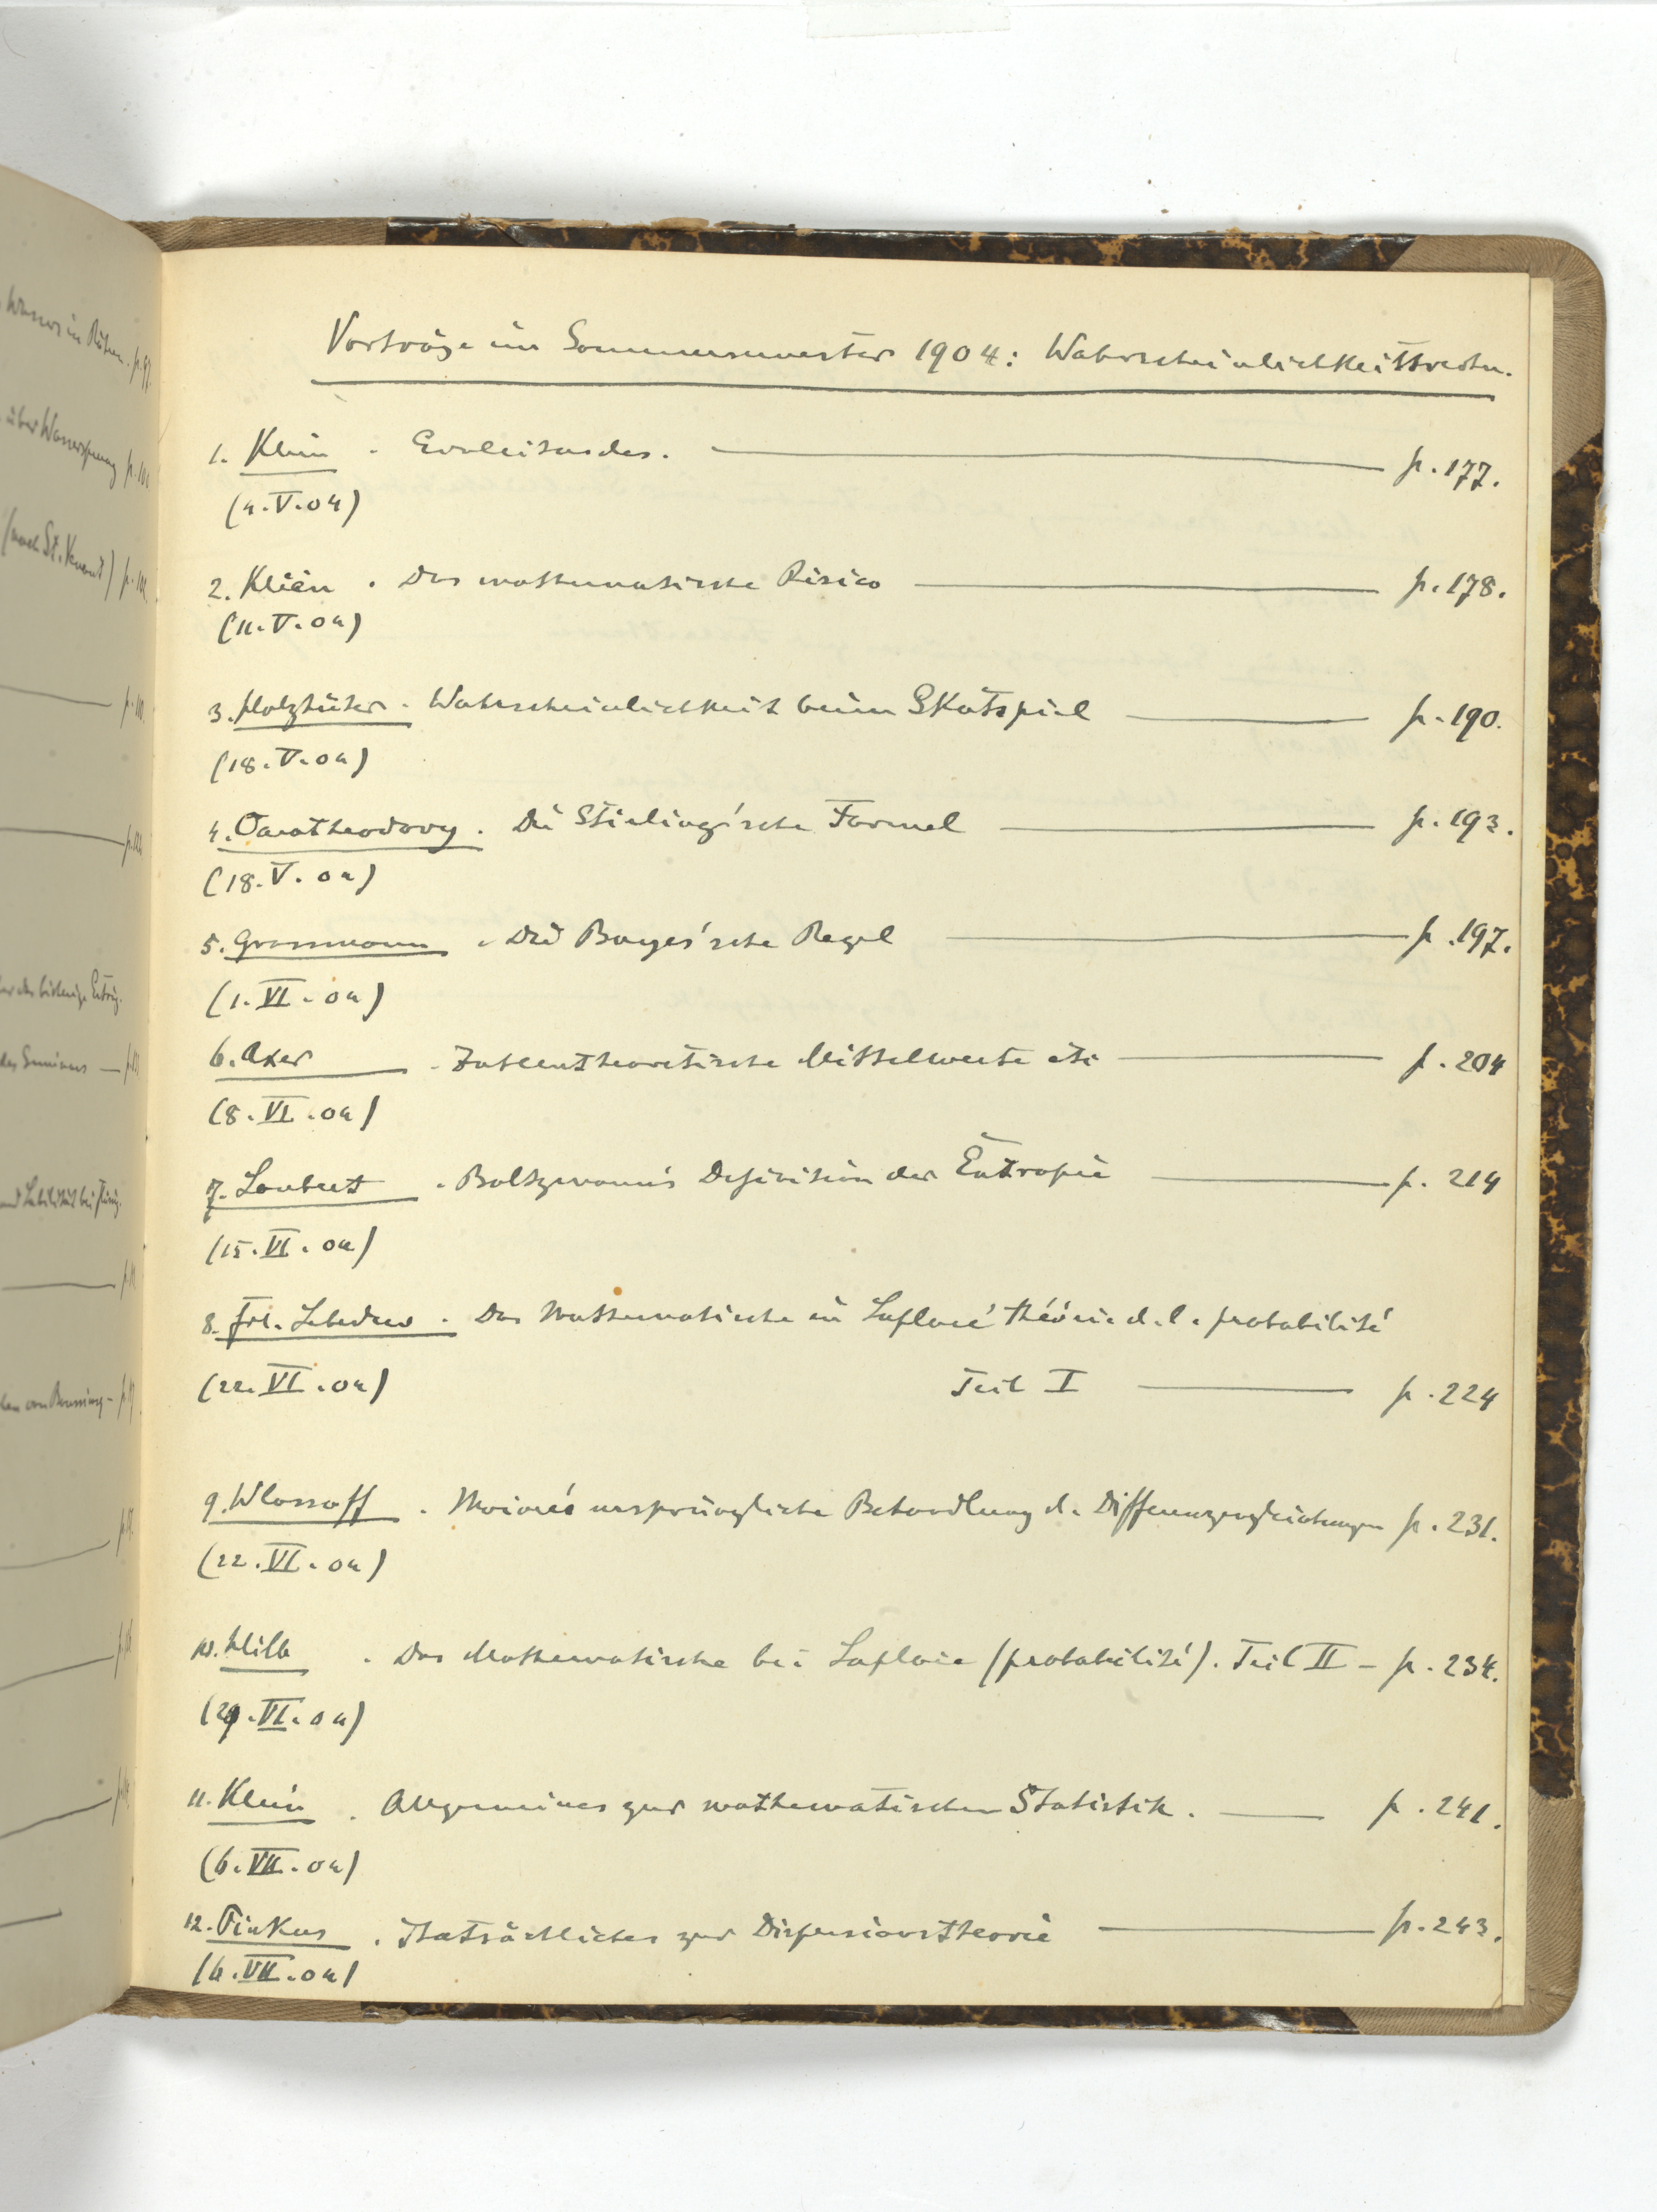 Vorträge im Sommersemester 1904: Wahrscheinlichkeitsrechn.
1. Klein . Einleitendes. p. 177.
(4.V.04)
2. Klein . Das mathematische Risico p. 178.
(11.V.04)
3. Holzhüter . Wahrscheinlichkeit beim Skatspiel p. 190.
(18.V.04)
4. Caratheodory . Die Stirling'sche Formel p. 193.
(18.V.04)
5. Grossmann . Die Bayes'sche Regel p. 197.
(1.VI.04)
6. Axer . Zahlentheoretische Mittelwerte etc p. 204
(8.VI.04)
7. Laubert . Boltzmann's Definition der Entropie p. 214
(15.VI.04)
8. Frl. Lebedew . Das Mathematische in Laplace' théorie d. l. probabilité
(22.VI.04) Teil I p. 224
9. Wlassoff . Moivre's ursprüngliche Behandlung d. Differenzengleichungen p. 231.
(22.VI.04)
10. Hilb . Das Mathematische bei Laplace (probabilité). Teil II – p. 234.
(29.VI.04)
11. Klein . Allgemeines zur mathematischen Statistik. p. 241.
(6.VII.04)
12. Pinkus . Thatsächliches zur Dispersionstheorie p. 243.
(6.VII.04)